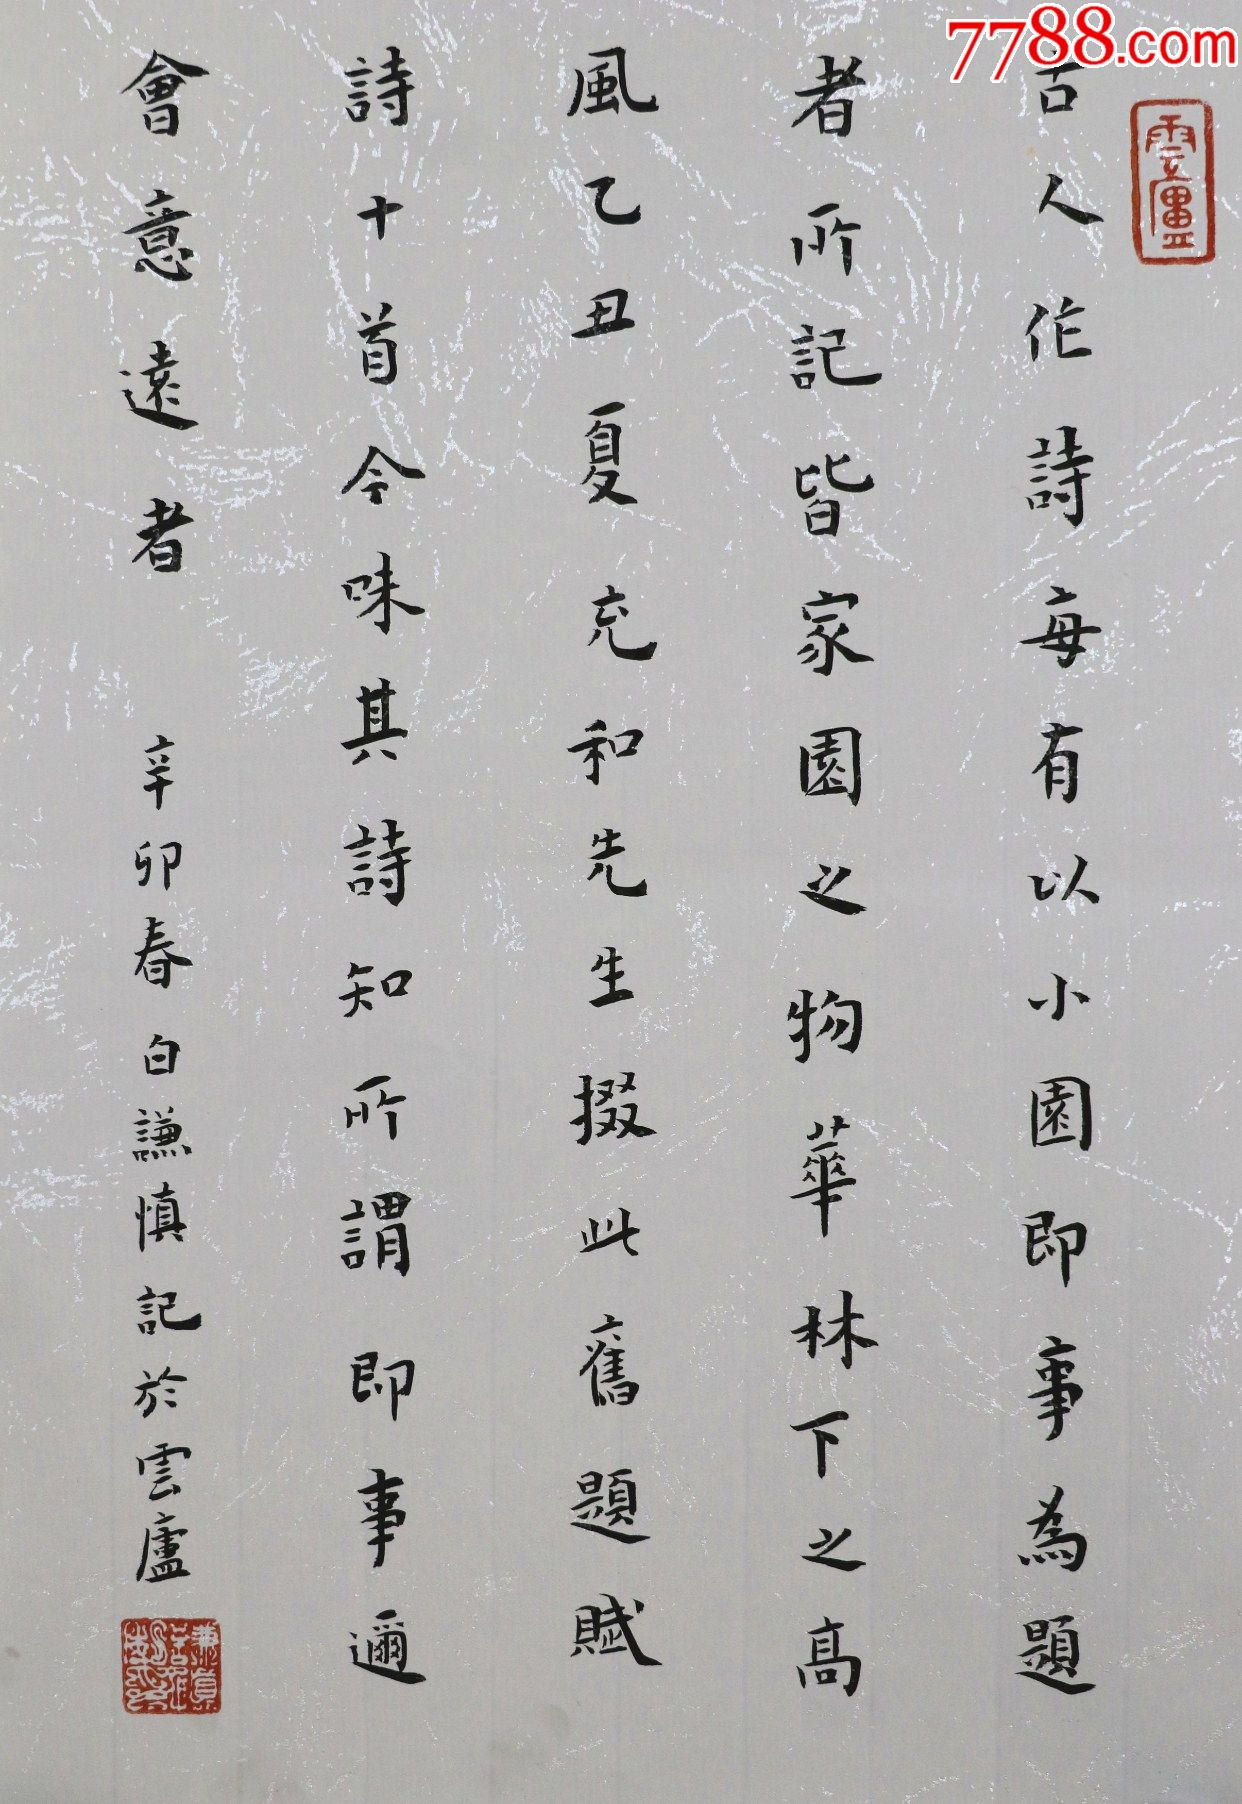 7788.com
雲廬
古人作詩每有以小園即事為題
者所記皆家園之物華林下之高
風乙丑夏充和先生掇此舊題賦
詩十首今味其詩知所謂即事邇
會意遠者
辛卯春白謙慎記於雲廬